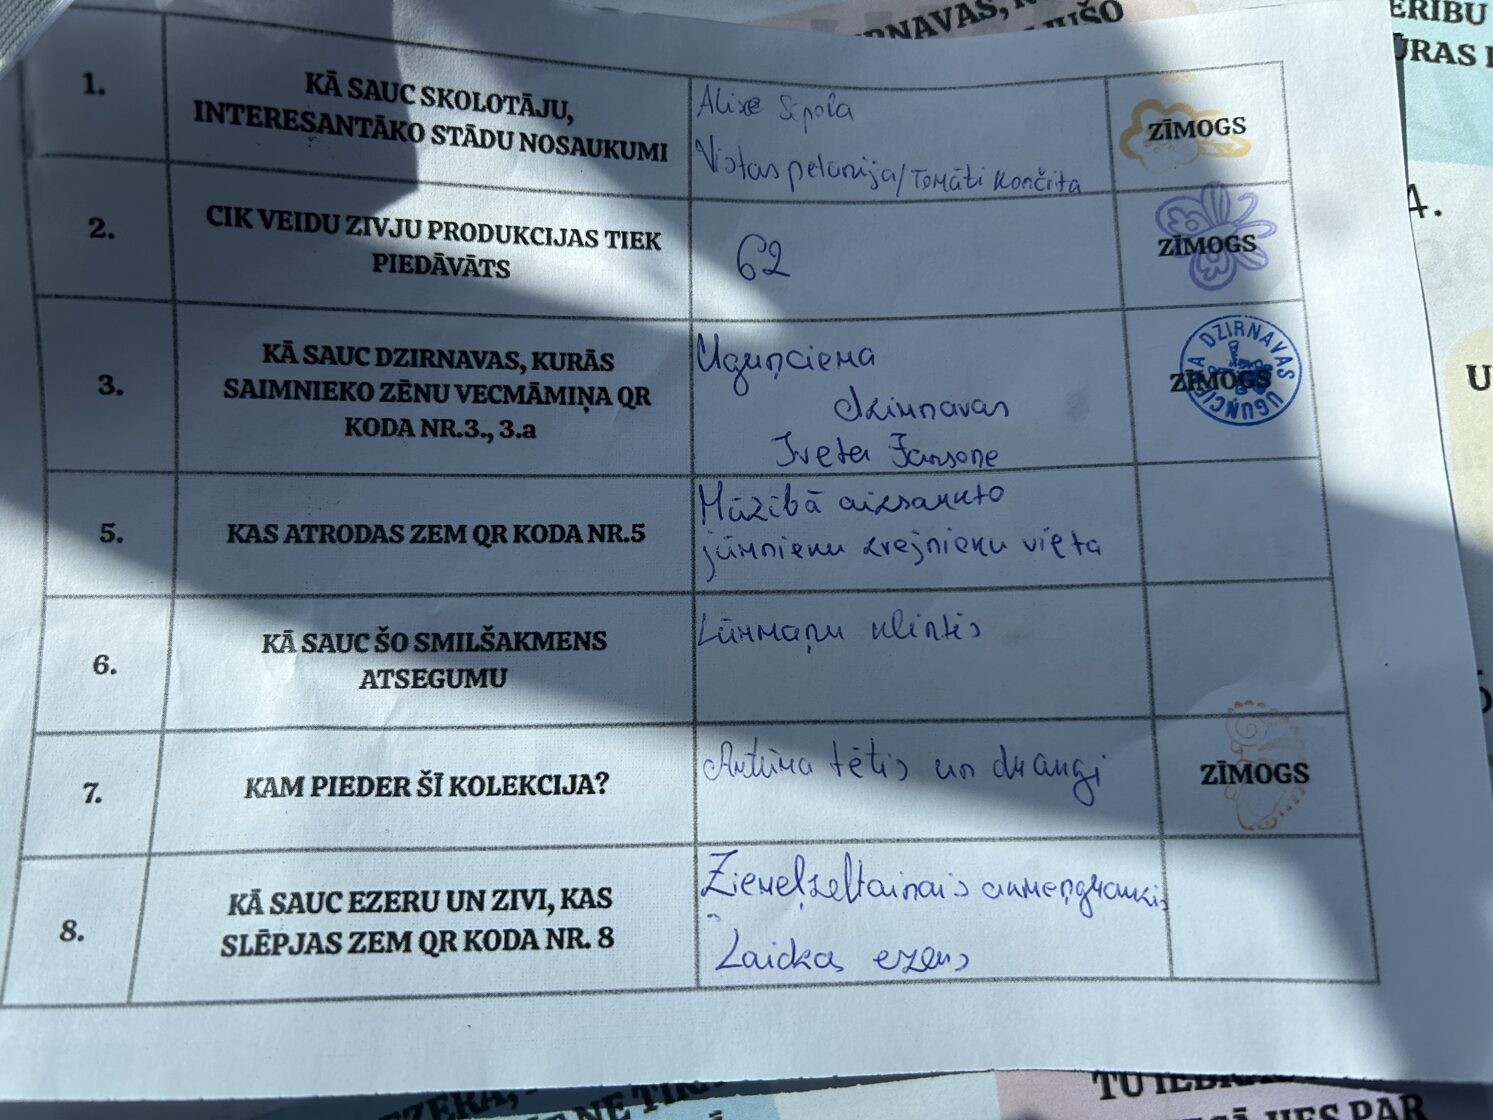 RNAVAS,
UŠO
ERĪBU
ŪRAS
1.
KĀ SAUC SKOLOTĀJU,
INTERESANTĀKO STĀDU NOSAUKUMI
Alise Sipola
Vistas petūnija/Tomāti Končita
ZĪMOGS
2.
CIK VEIDU ZIVJU PRODUKCIJAS TIEK
PIEDĀVĀTS
62
ZĪMOGS
4.
3.
KĀ SAUC DZIRNAVAS, KURĀS
SAIMNIEKO ZĒNU VECMĀMIŅA QR
KODA NR.3., 3.a
Uguņciema
dzirnavas
Iveta Jansone
ZĪMOGS
UGUŅCIEMA DZIRNAVAS
U
5.
KAS ATRODAS ZEM QR KODA NR.5
Mūžībā aizsaukto
jūrnieku zvejnieku vieta
6.
KĀ SAUC ŠO SMILŠAKMENS
ATSEGUMU
Lūrmaņu klintis
7.
KAM PIEDER ŠĪ KOLEKCIJA?
Artūra tētis un draugi
ZĪMOGS
8.
KĀ SAUC EZERU UN ZIVI, KAS
SLĒPJAS ZEM QR KODA NR. 8
Ziemeļzeltainais akmeņgrauzis
Laidzes ezers
EZERA,
NE TIK
TU
JIES PAR